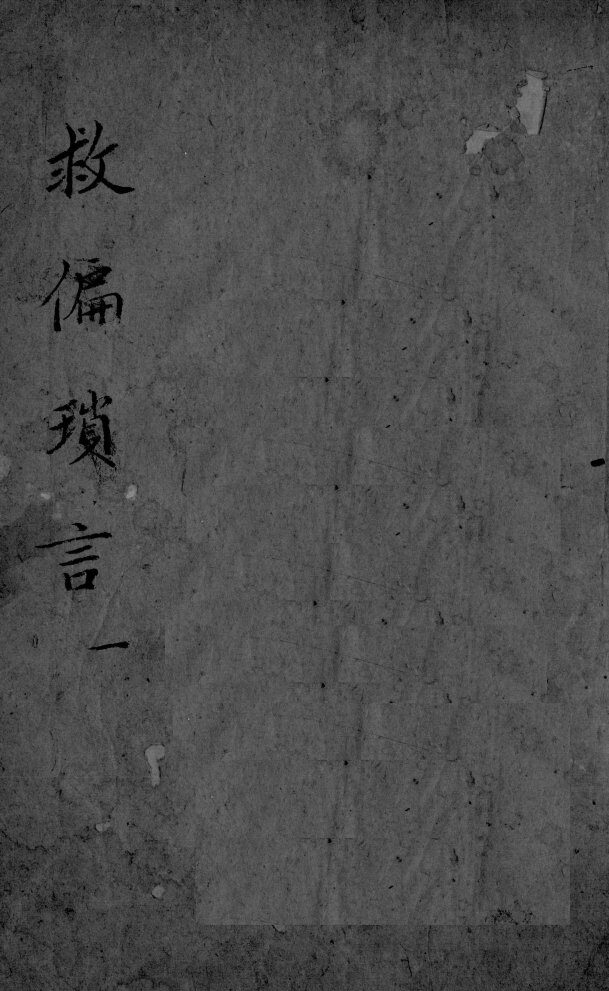 救偏瑣言
一